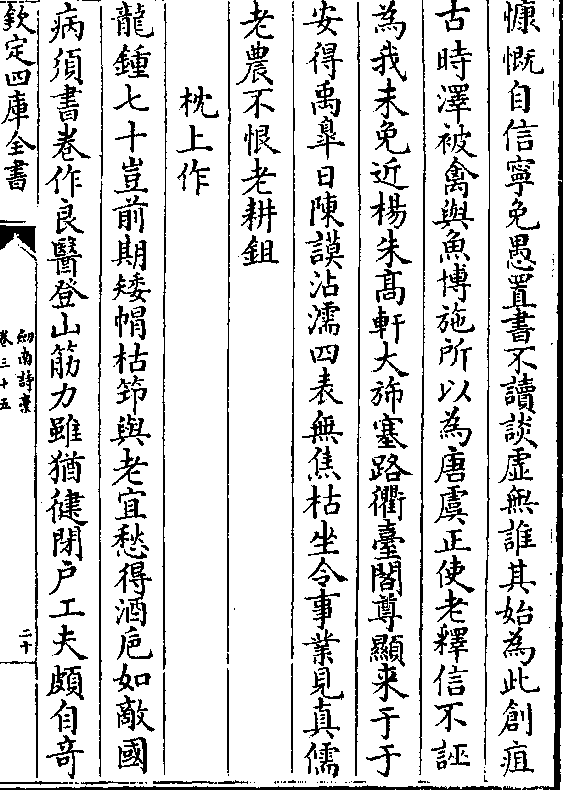 慷慨自信寧免愚置書不讀談虛無誰其始為此創疽
古時澤被禽與魚博施所以為唐虞正使老釋信不誣
為我未免近楊朱髙軒大斾塞路衢臺閣尊顯来于于
安得禹臯日陳謨沾濡四表無焦枯坐令事業見真儒
老農不恨老耕鉏
枕上作
龍鍾七十豈前期矮帽枯筇與老宜愁得酒巵如敵國
病須書卷作良醫登山筋力雖猶健閉户工夫頗自竒
欽定四庫全書
劒南詩藁
卷三十五
二十